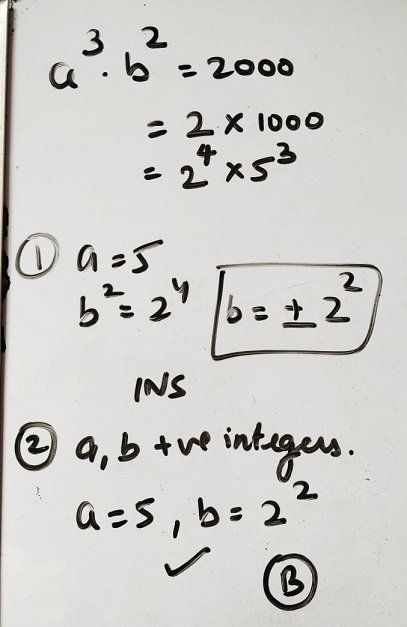 a³ · b² = 2000
= 2 × 1000
= 2⁴ × 5³
① a = 5
b² = 2⁴ b = ± 2²
INS
② a, b +ve integers.
a = 5 , b = 2²
✓
Ⓑ